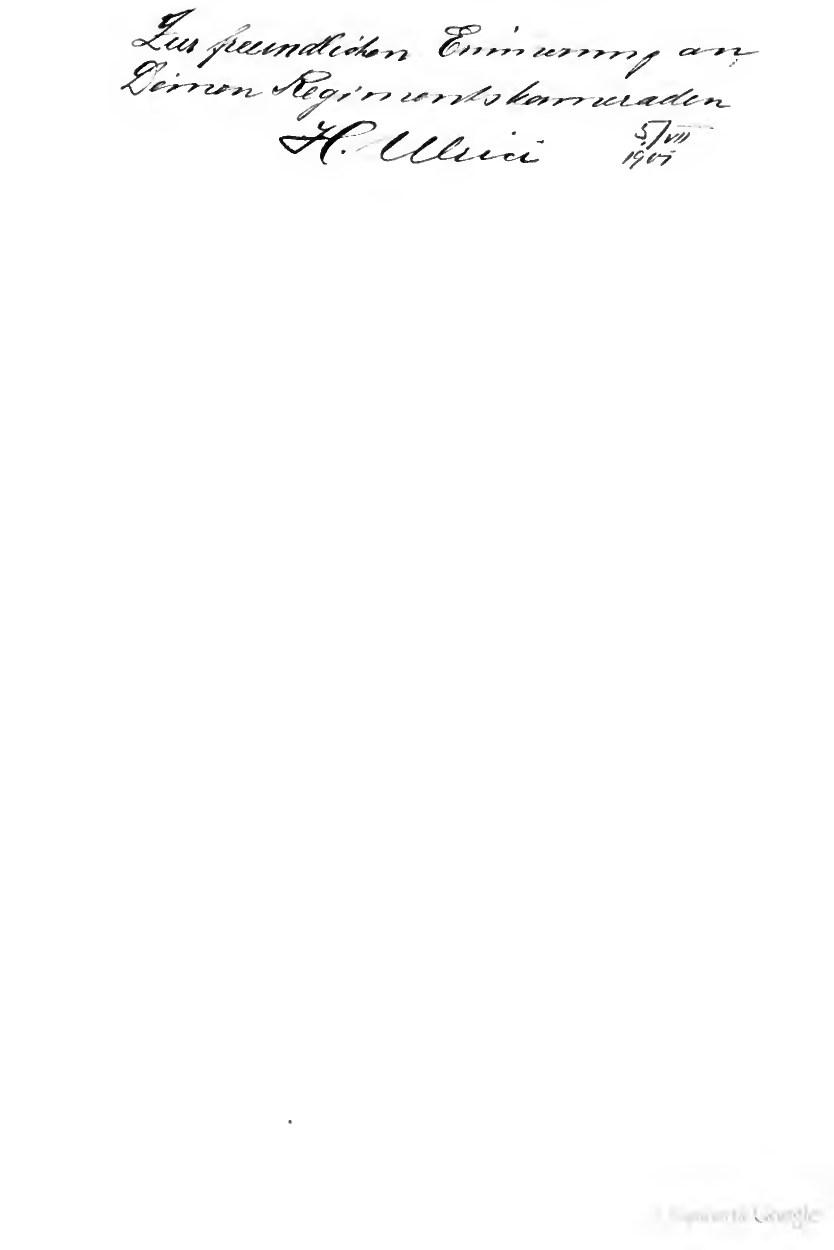 Zur freundlichen Erinnerung an
Deinen Regimentskameraden
H. Ulrici 5/VII
1901
Google